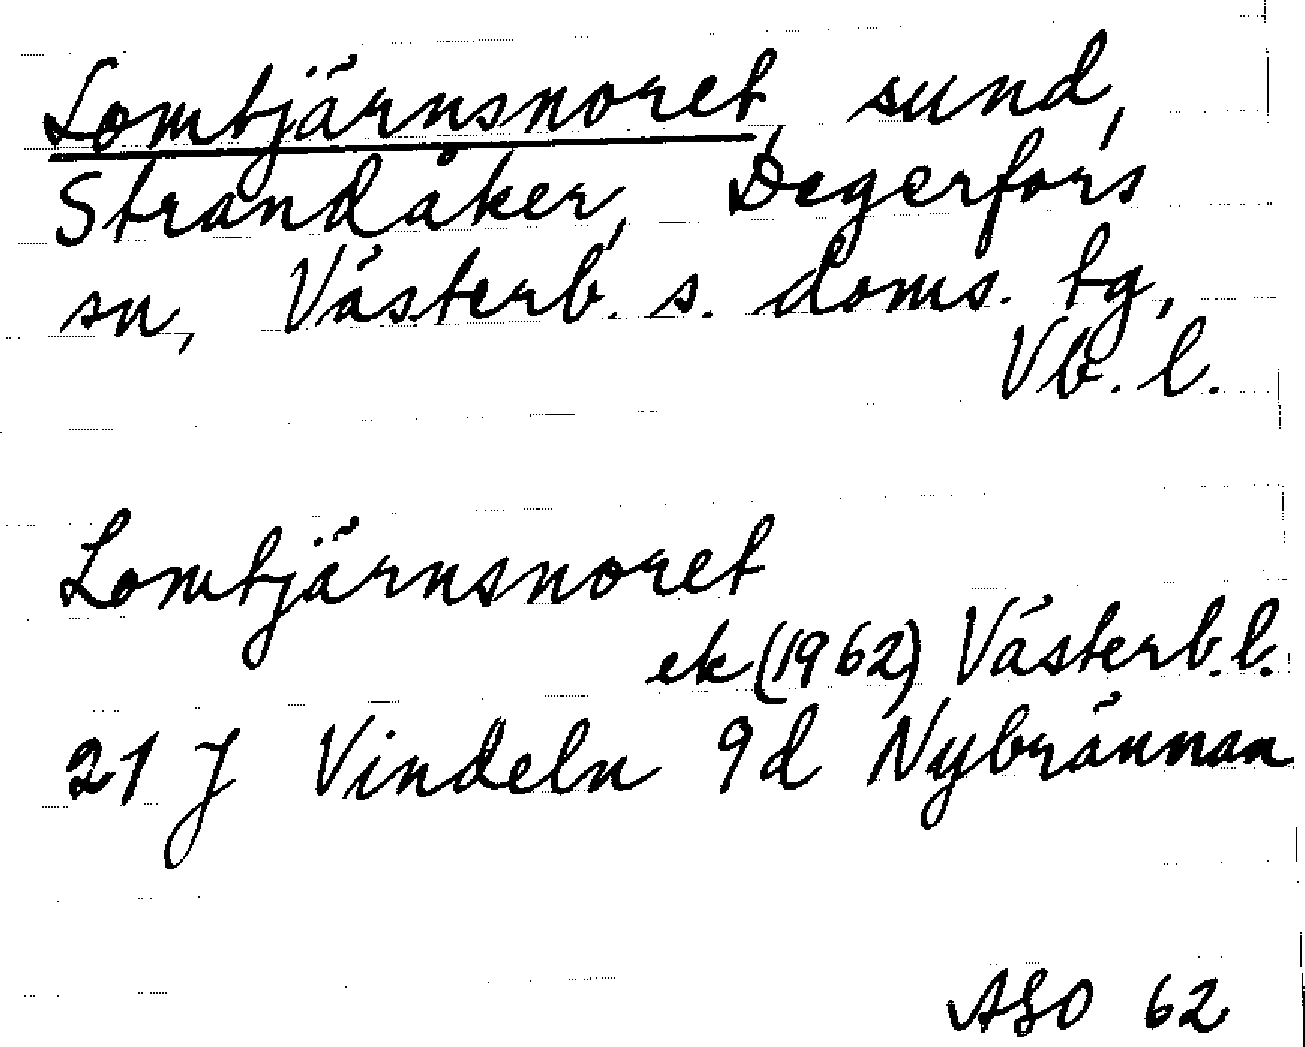 Lomtjärnsnoret, sund,
Strandåker, Degerfors
sn, Västerb. s. doms. tg,
Vb. l.
Lomtjärnsnoret
ek (1962) Västerb. l.
21 J Vindeln 9d Nybrännan
62